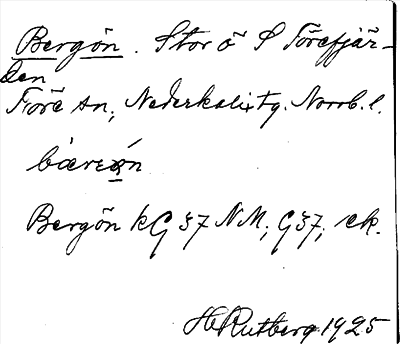 Bergön. Stor ö S Törefjär-
den
Töre sn, Nederkalix tg. Norrb. l.
bæreön
Bergön kG 37 NM; G37, ek.
H Rutberg 1925